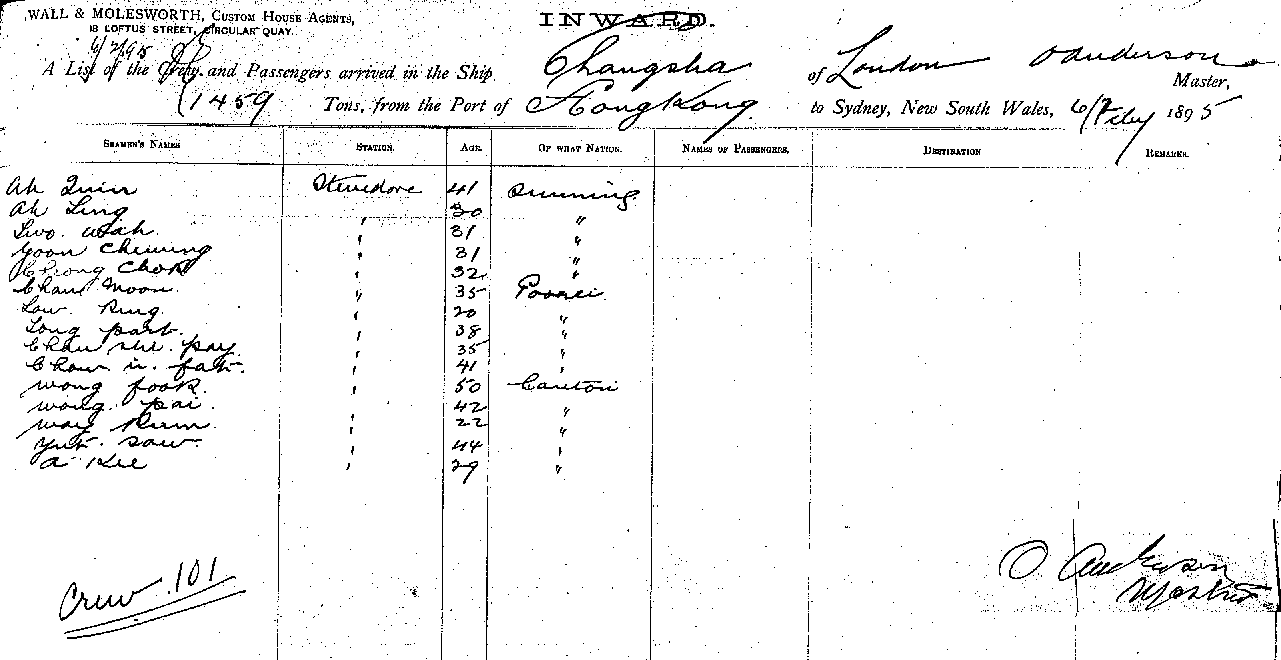 WALL & MOLESWORTH, CUSTOM HOUSE AGENTS,
18 LOFTUS STREET, CIRCULAR QUAY.
INWARD.
6/2/95
A List of the Crew and Passengers arrived in the Ship Changsha of London O Anderson Master,
1459 Tons, from the Port of HongKong to Sydney, New South Wales, 6/7 Feby 1895
SEAMEN'S NAMES STATION. AGE. OF WHAT NATION. NAMES OF PASSENGERS. DESTINATION REMARKS.
Ah Quin Stevedore 41 Sunning
Ah Ling " 30 "
Two. Wah. " 31 "
Yoon Cheung " 31 "
Chong Chok " 32 "
Chan Moon. " 35 Poonei
Low. King. " 20 "
Long part. " 38 "
Chan she. pay. " 35 "
Chow u. fat. " 41 "
Wong fook. " 50 Canton
Wong. pai. " 42 "
Way Kum " 22 "
Yut. Saw. " 44 "
A Kee " 29 "
Crew 101
O Anderson
Master